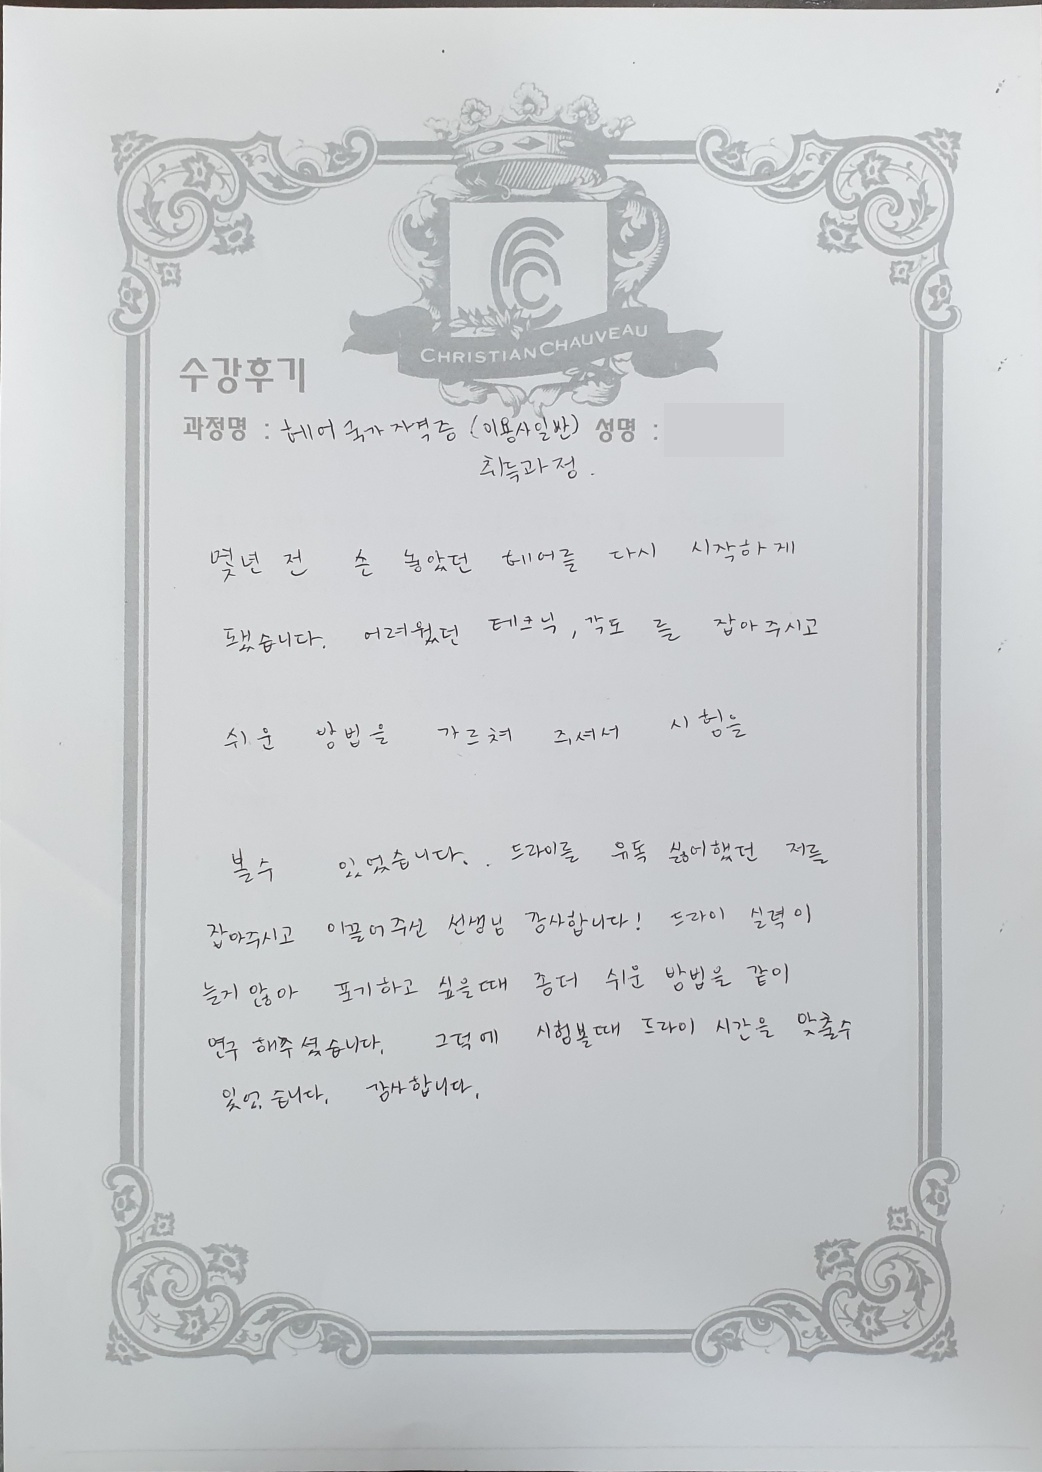 CHRISTIAN CHAUVEAU
수강후기
과정명 : 헤어 국가 자격증 (이용사일반) 성명 :
취득과정.
몇년 전 손 놓았던 헤어를 다시 시작하게
됐습니다. 어려웠던 테크닉, 각도 를 잡아주시고
쉬운 방법을 가르쳐 주셔서 시험을
볼수 있었습니다.. 드라이를 유독 싫어했던 저를
잡아주시고 이끌어주신 선생님 감사합니다! 드라이 실력이
늘지 않아 포기하고 싶을때 좀더 쉬운 방법을 같이
연구 해주셨습니다. 그덕에 시험볼때 드라이 시간을 맞출수
있었습니다. 감사합니다.